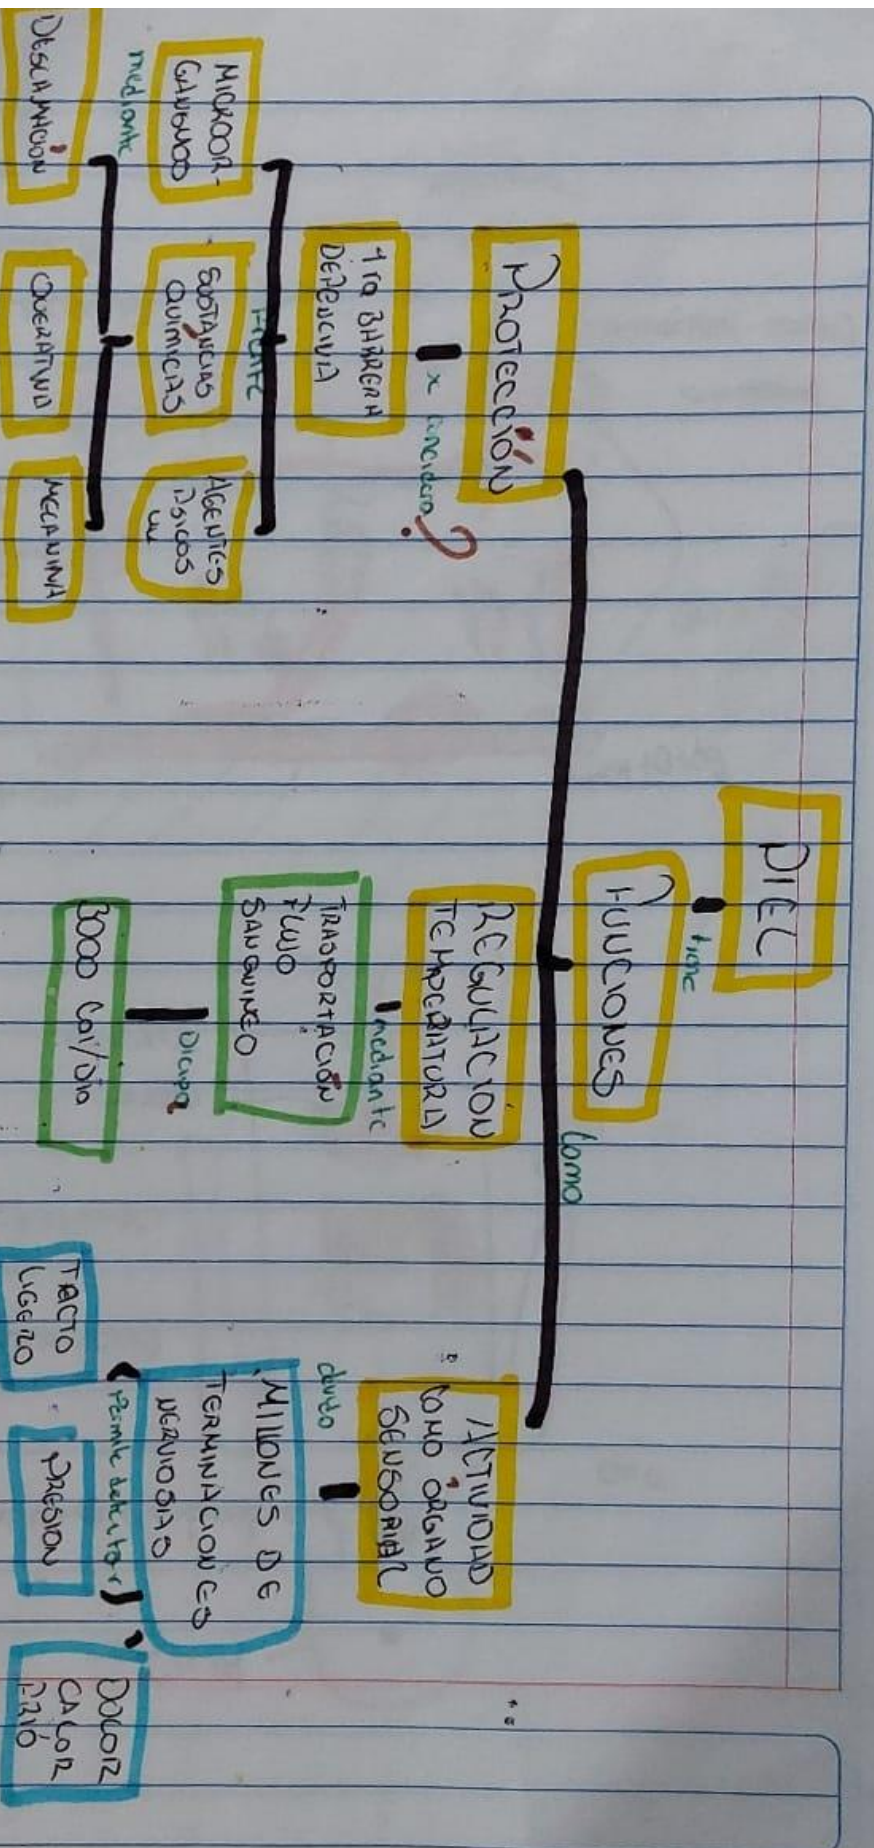 PIEL
tiene
FUNCIONES
como
PROTECCIÓN
x
?
1ra BARRERA
DEFENCIVA
frente
MICROOR-
GANISMOS
SUSTANCIAS
QUÍMICAS
AGENTES
FSICOS
UV
mediante
DESCAMACIÓN
QUERATINA
MELANINA
REGULACIÓN
TEMPERATURA
mediante
TRASPORTACIÓN
FLUJO
SANGUINEO
Dicipa
3000 Cal/Dia
ACTIVIDAD
COMO ÓRGANO
SENSORIAL
devido
MILLONES DE
TERMINACIONES
NERVIOSAS
Permite detectar
TACTO
LIGERO
PRESION
DOLOR
CALOR
FRIÓ